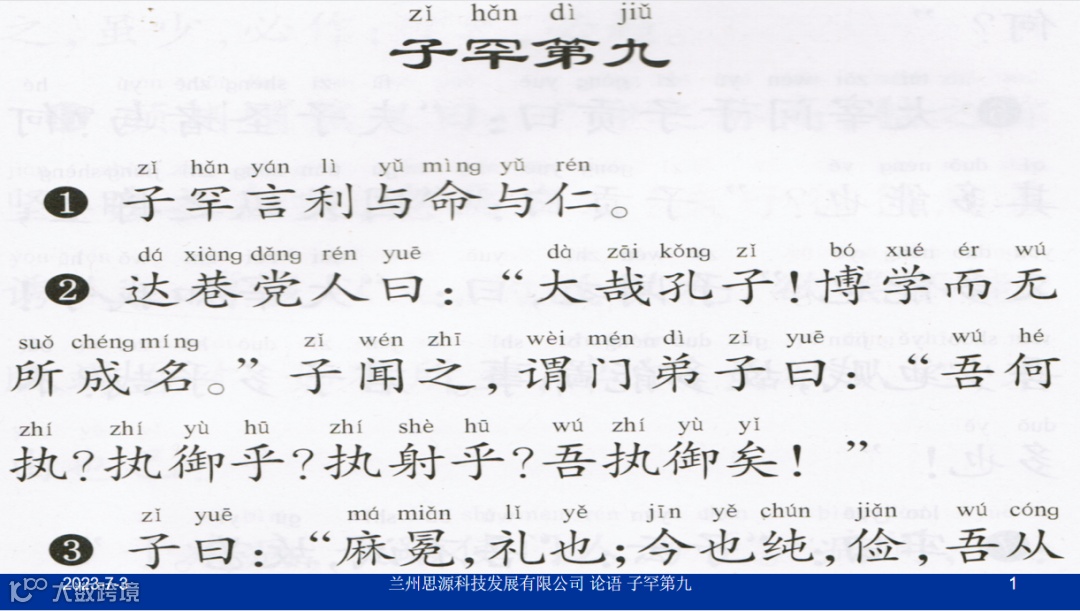 zǐ hǎn dì jiǔ
子罕第九
zǐ hǎn yán lì yǔ mìng yǔ rén
❶ 子罕言利与命与仁。
dá xiàng dǎng rén yuē dà zāi kǒng zǐ bó xué ér wú
❷ 达巷党人曰：“大哉孔子！博学而无
suǒ chéng míng zǐ wén zhī wèi mén dì zǐ yuē wú hé
所成名。”子闻之，谓门弟子曰：“吾何
zhí zhí yù hū zhí shè hū wú zhí yù yǐ
执？执御乎？执射乎？吾执御矣！”
zǐ yuē má miǎn lǐ yě jīn yě chún jiǎn wú cóng
❸ 子曰：“麻冕，礼也；今也纯，俭，吾从
2023-7-3 兰州思源科技发展有限公司 论语 子罕第九 1
大数跨境